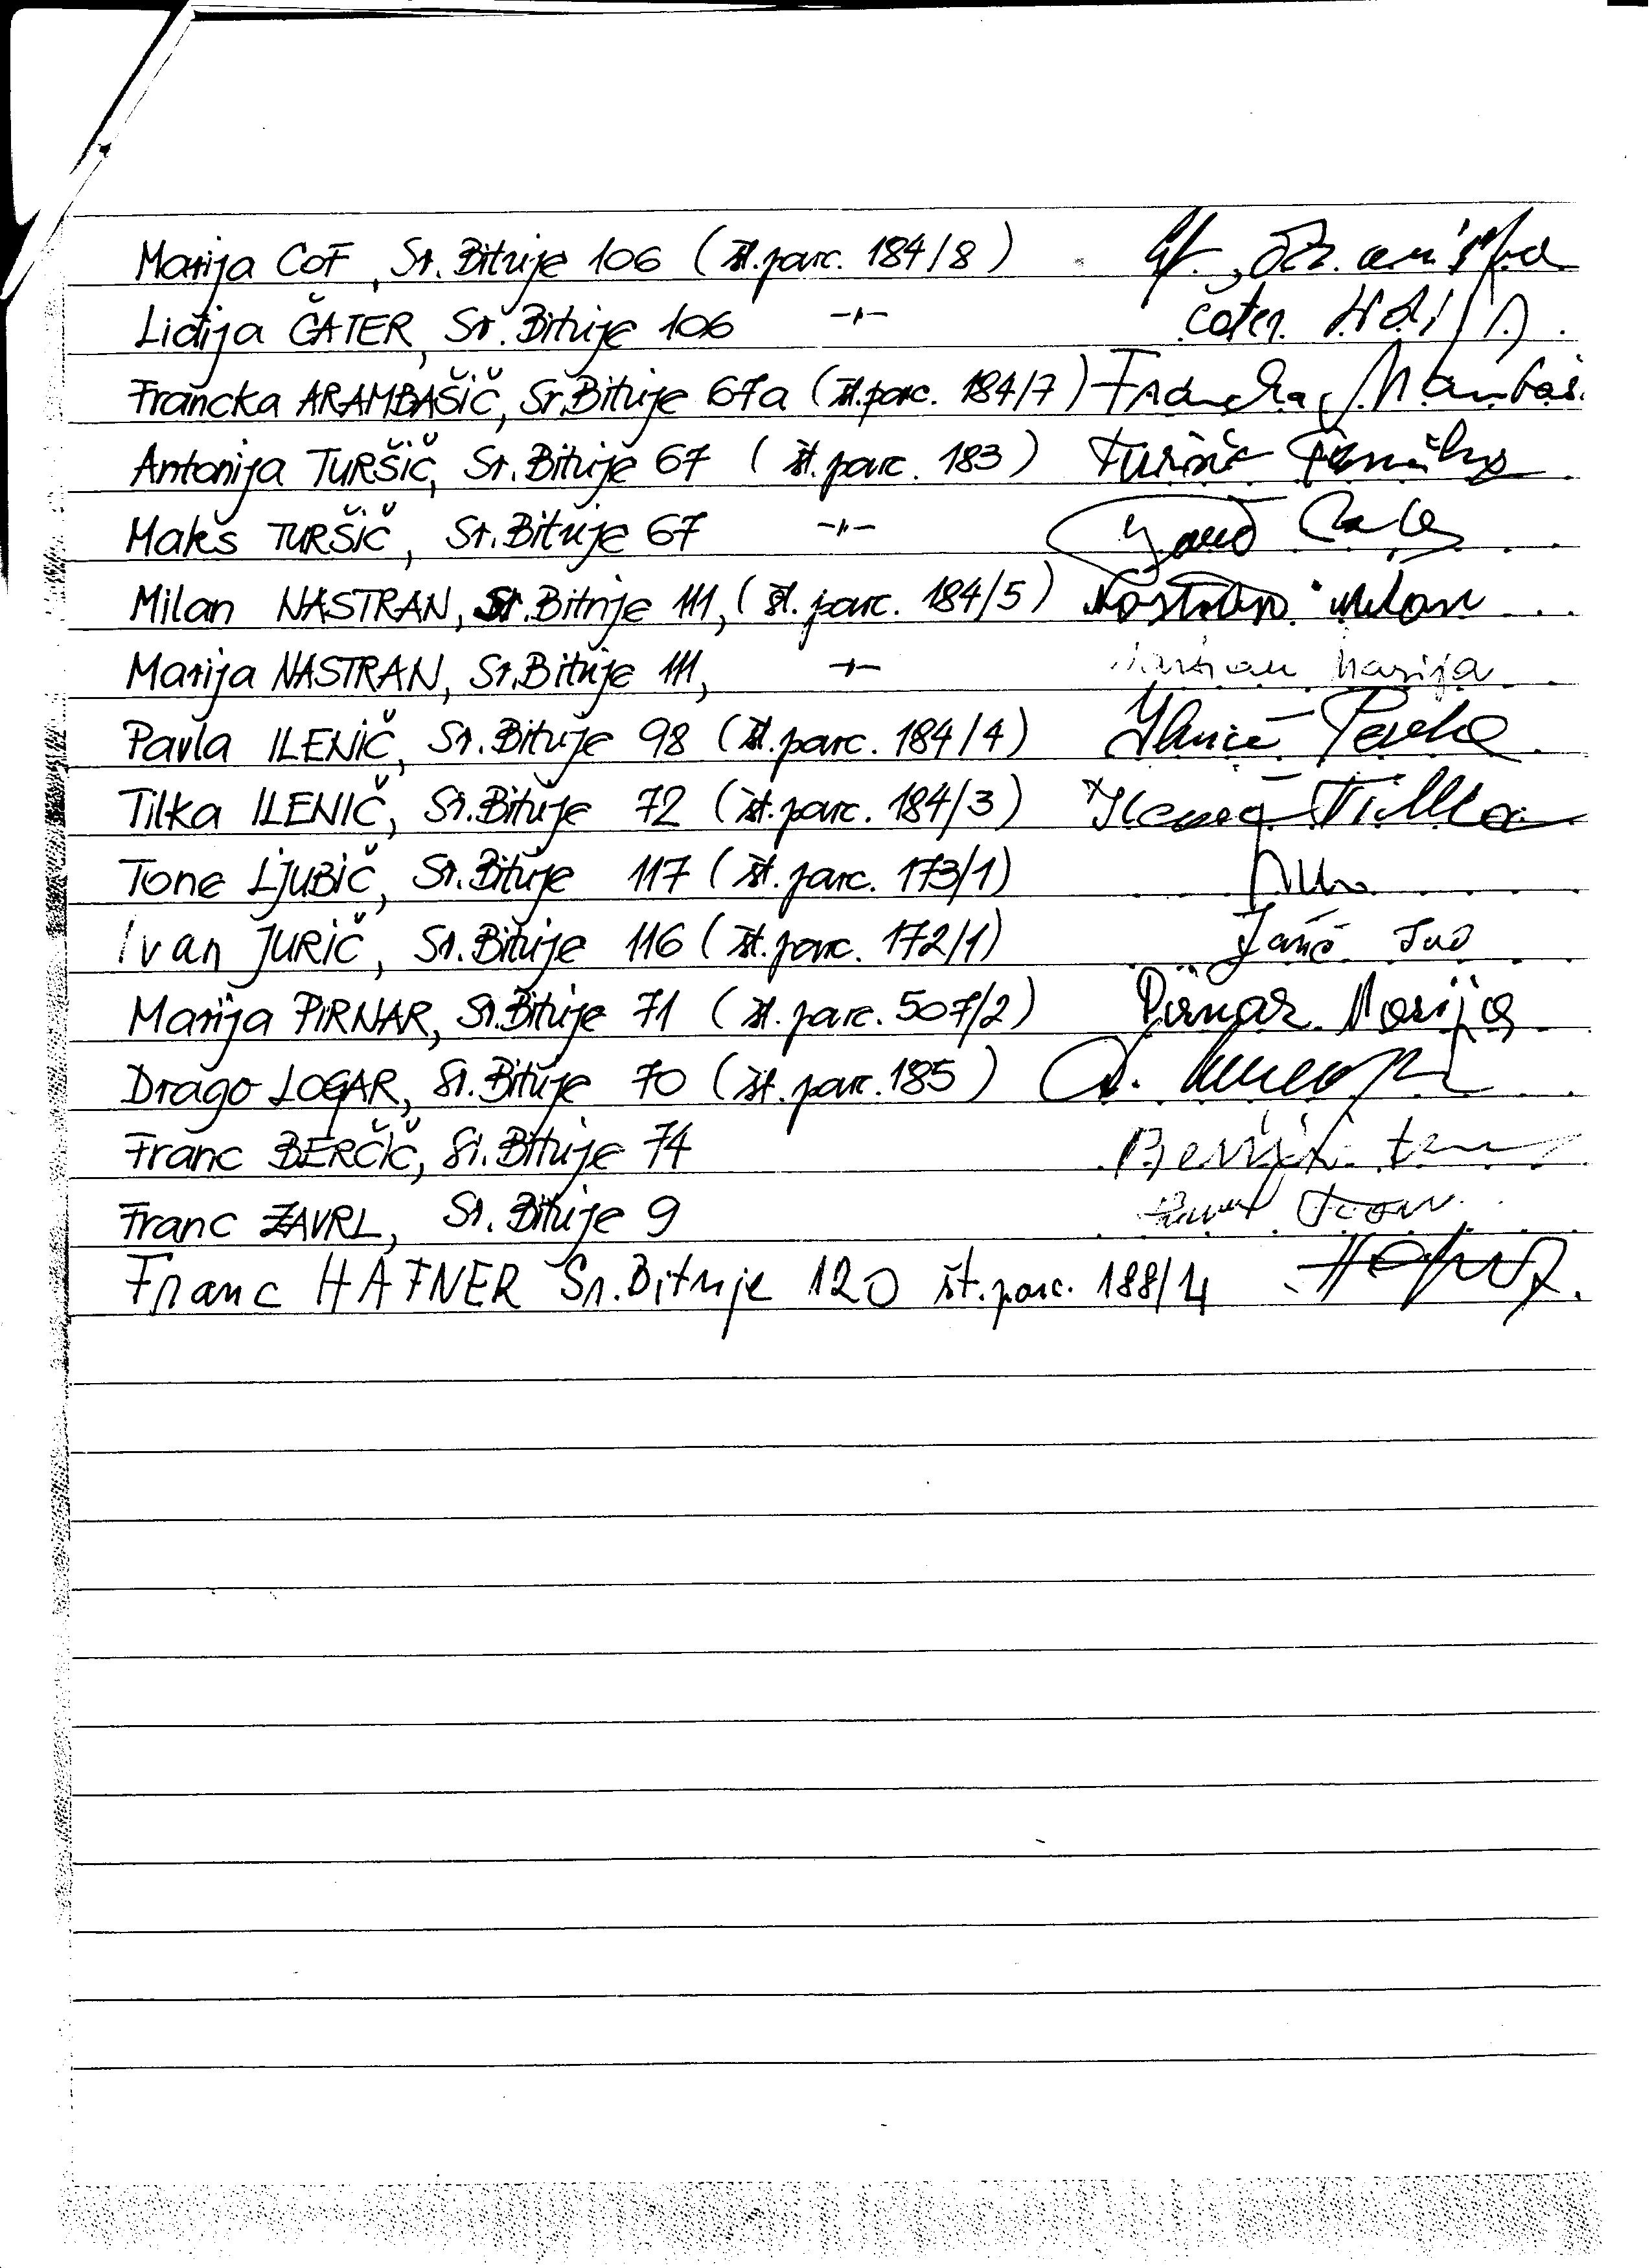 Marija COF, Sr. Bitnje 106 (št. parc. 184/8)
Lidija ČATER, Sr. Bitnje 106 -"- Čater
Francka ARAMBAŠIČ, Sr. Bitnje 67a (št. parc. 184/7) Francka
Antonija TURŠIČ, Sr. Bitnje 67 (št. parc. 183) Turšič
Maks TURŠIČ, Sr. Bitnje 67 -"-
Milan NASTRAN, Sr. Bitnje 111, (št. parc. 184/5) Nastran Milan
Marija NASTRAN, Sr. Bitnje 111, -"- Nastran Marija
Pavla ILENIČ, Sr. Bitnje 98 (št. parc. 184/4) Ilenič Pavla
Tilka ILENIČ, Sr. Bitnje 72 (št. parc. 184/3) Ilenič Tilka
Tone LJUBIČ, Sr. Bitnje 117 (št. parc. 173/1)
Ivan JURIČ, Sr. Bitnje 116 (št. parc. 172/1)
Marija PIRNAR, Sr. Bitnje 71 (št. parc. 507/2) Pirnar Marija
Drago LOGAR, Sr. Bitnje 70 (št. parc. 185)
Franc BERČIČ, Sr. Bitnje 74
Franc ZAVRL, Sr. Bitnje 9
Franc HAFNER Sr. Bitnje 120 št. parc. 188/4